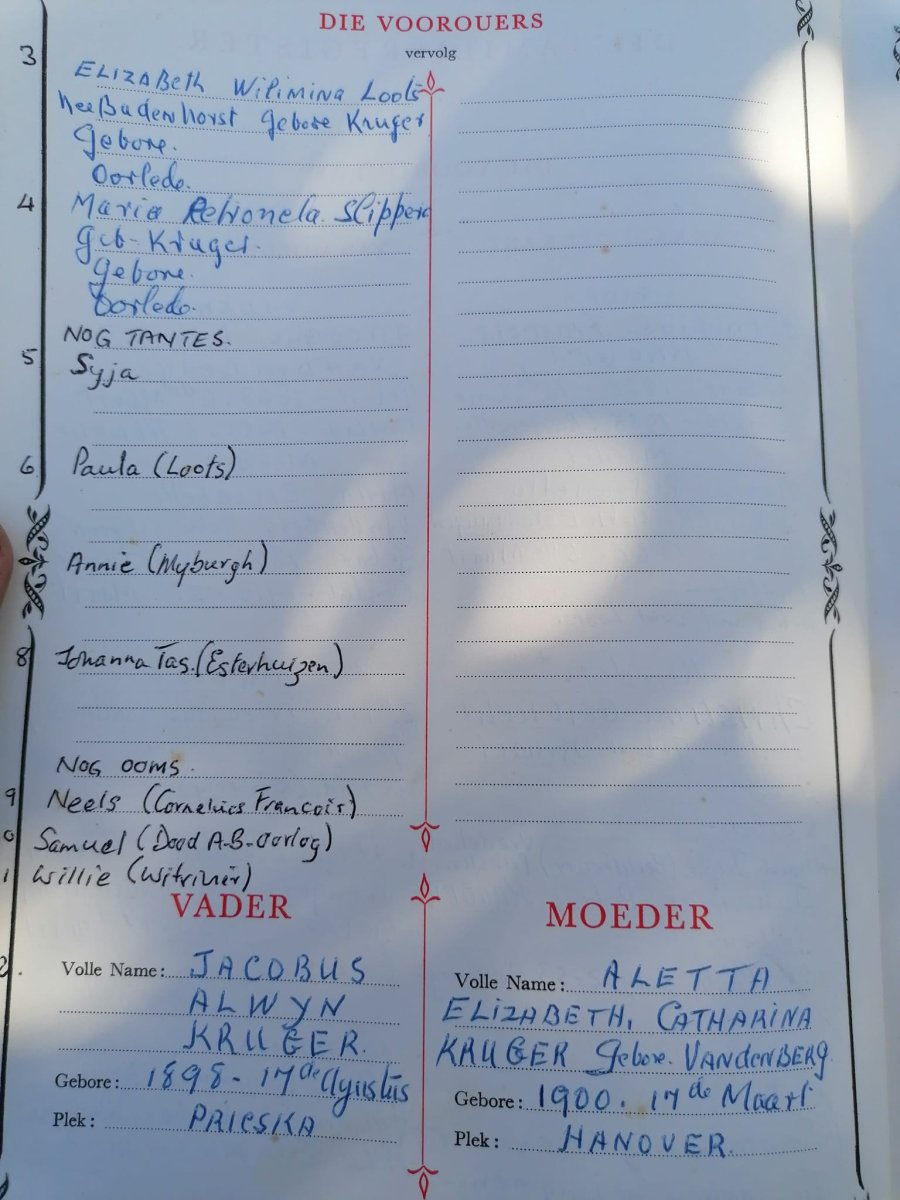 DIE VOOROUERS
vervolg
3
ELIZABeth Wilimina Loots
nee Badenhorst gebore Kruger
Gebore.
Oorlede.
4 Maria Petronela Slippers
Geb- Kruger.
Gebore.
Oorlede.
NOG TANTES.
5 Syja
6 Paula (Loots)
Annie (Myburgh)
8 Johanna Tas. (Esterhuizen)
NOG OOMS.
9 Neels (Cornelius Francois)
0 Samuel (Dood A-B-Oorlog)
1 Willie (Witrivier)
VADER
2. Volle Name: JACOBUS
ALWYN
KRUGER.
Gebore: 1898 - 17de Agustus
Plek: PRIESKA
MOEDER
Volle Name: ALETTA
ELIZABETH, CATHARINA
KRUGER Gebore. VANdenBERG.
Gebore: 1900. 17de Maart
Plek: HANOVER.